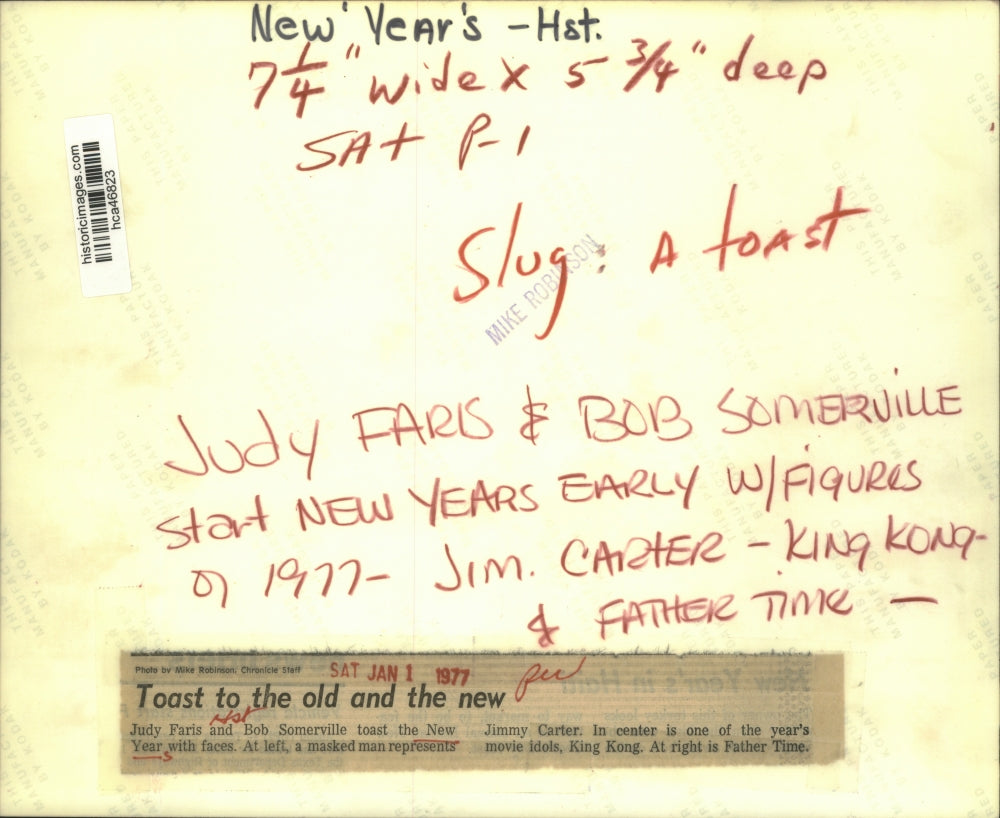 New Year's - Hst.
7 1/4" wide x 5 3/4" deep
SAt P-1
historicimages.com
hca46823
Slug: A toast
MIKE ROBINSON
Judy FARIS & BOB SOMERVILLE
start NEW YEARS EARLY W/FIGURES
of 1977- JIM. CARTER - KING KONG-
& FATHER TIME -
Photo by Mike Robinson, Chronicle Staff
SAT JAN 1 1977
Toast to the old and the new
Hst
Judy Faris and Bob Somerville toast the New
Year with faces. At left, a masked man represents
s
Jimmy Carter. In center is one of the year's
movie idols, King Kong. At right is Father Time.
THIS PAPER
MANUFACTURED
BY KODAK